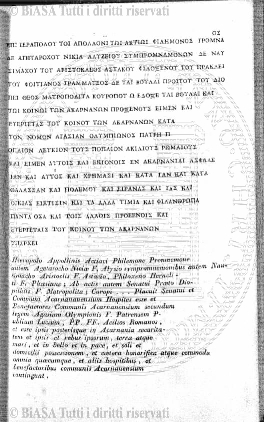 ΟΣ
ΕΠΙ ΙΕΡΑΠΟΛΟΥ ΤΟΙ ΑΠΟΛΛΩΝΙ ΤΩΙ ΑΚΤΙΩΙ ΦΙΛΗΜΟΝΟΣ
ΔΕ ΑΓΗΤΑΡΟΧΟΥ ΝΙΚΙΑ ΣΥΜΠΡΟΜΝΑΜΟΝΩΝ ΔΕ ΝΑΥ
ΣΙΜΑΧΟΥ ΤΟΥ ΑΡΙΣΤΟΚΛΕΟΣ ΑΣΤΑΚΟΥ ΦΙΛΟΞΕΝΟΥ ΤΟΥ
ΤΟΥ ΦΟΙΤΙΑΝΟΣ ΤΑΙ ΒΟΥΛΑΙ ΠΡΟΙΤΟΥ ΤΟΥ ΔΙΟ
ΘΕΟΣ ΜΑΤΡΟΠΟΛΙΤΑ ΕΔΟΞΕ ΤΑΙ ΒΟΥΛΑΙ ΚΑΙ
ΤΩΙ ΚΟΙΝΩΙ ΤΩΝ ΑΚΑΡΝΑΝΩΝ ΠΡΟΞΕΝΟΥΣ ΕΙΜΕΝ ΚΑΙ
ΕΥΕΡΓΕΤΑΣ ΤΟΥ ΚΟΙΝΟΥ ΤΩΝ ΑΚΑΡΝΑΝΩΝ ΚΑΤΑ
ΤΟΝ ΝΟΜΟΝ ΑΓΑΣΙΑΝ ΟΛΥΜΠΙΩΝΟΣ ΠΑΤΡΗ
ΠΟΠΛΙΟΝ ΑΚΙΛΙΟΥΣ ΡΩΜΑΙΟΥΣ
ΚΑΙ ΕΙΜΕΝ ΑΥΤΟΙΣ ΚΑΙ ΕΚΓΟΝΟΙΣ ΕΝ ΑΚΑΡΝΑΝΙΑΙ ΑΣΦΑΛΕ
ΙΑΝ ΚΑΙ ΑΥΤΟΙΣ ΚΑΙ ΧΡΗΜΑΣΙ ΚΑΙ ΚΑΤΑ ΓΑΝ ΚΑΙ ΚΑΤΑ
ΘΑΛΑΣΣΑΝ ΚΑΙ ΠΟΛΕΜΟΥ ΚΑΙ ΕΙΡΑΝΑΣ ΚΑΙ ΓΑΣ ΚΑΙ
ΟΙΚΙΑΣ ΕΓΚΤΗΣΙΝ ΚΑΙ ΤΑ ΑΛΛΑ ΤΙΜΙΑ ΚΑΙ ΦΙΛΑΝΘΡΩΠΑ
ΠΑΝΤΑ ΟΣΑ ΚΑΙ ΤΟΙΣ ΑΛΛΟΙΣ ΠΡΟΞΕΝΟΙΣ ΚΑΙ
ΕΥΕΡΓΕΤΑΙΣ ΤΟΥ ΚΟΙΝΟΥ ΤΩΝ ΑΚΑΡΝΑΝΩΝ
ΥΠΑΡΧΕΙ
Hierapolo Appollinis Actiaci Philemone Promnamone
autem Agetarocho Niciæ F. Alyzio sympromnamonibus autem Nau-
simacho Aristoclis F. Astacio, Philoxeno Heracli-
ti F. Phœtiano; Ab actis autem Senatui Prœto Dio-
pithis F. Matropolita; Curopo . . . Placuit Senatui et
Communi Acarnanensium Hospites esse et
Benefactores Communis Acarnanensium secundum
legem Agasian Olympionis F. Patrensem P-
ublium Lucium, PP. FF. Acilios Romanos,
et esse ipsis posterisque in Acarnania securita-
tem et ipsis et rebus ipsorum, terra atque
mari, et in bello et in pace, et soli et
domicilii possessionem, et cætera honorifica atque commoda
omnia quæcumque, et aliis hospitibus, et
benefactoribus communis Acarnanensium
contingunt.
© BIASA Tutti i diritti riservati